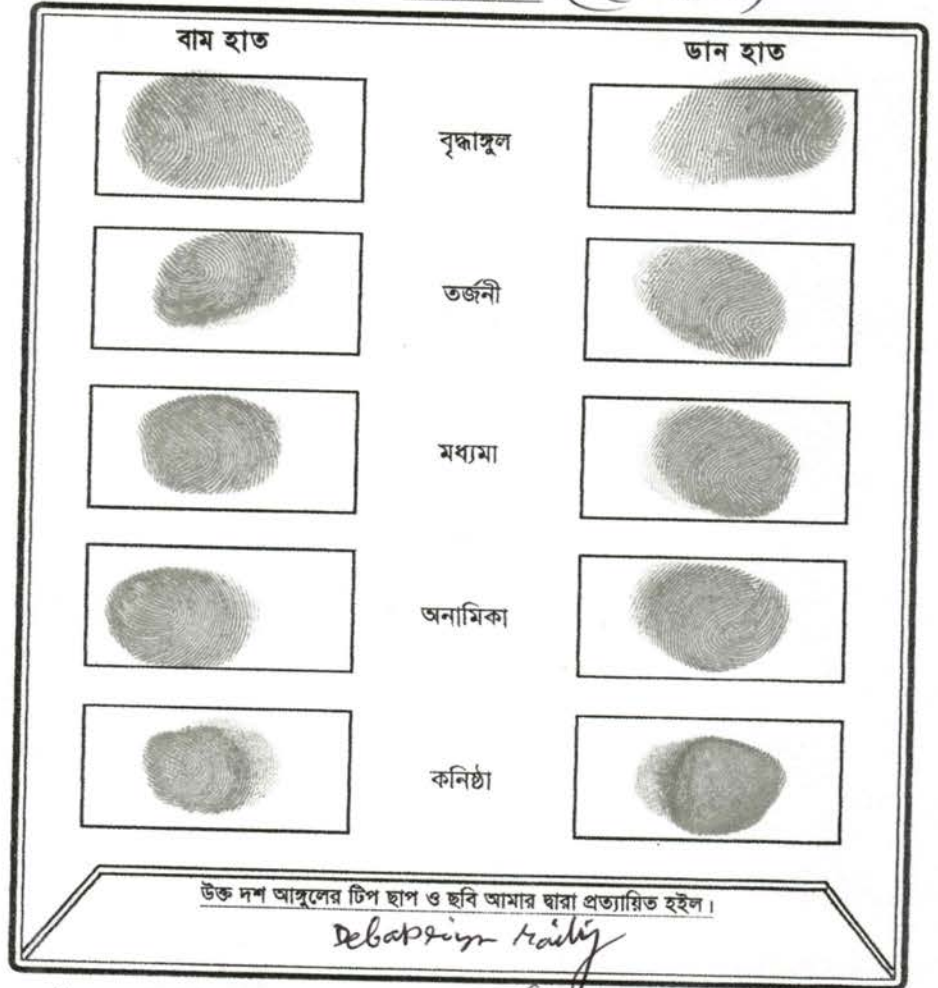 বাম হাত
ডান হাত
বৃদ্ধাঙ্গুল
তর্জনী
মধ্যমা
অনামিকা
কনিষ্ঠা
উক্ত দশ আঙ্গুলের টিপ ছাপ ও ছবি আমার দ্বারা প্রত্যায়িত হইল।
Debapriya Maity